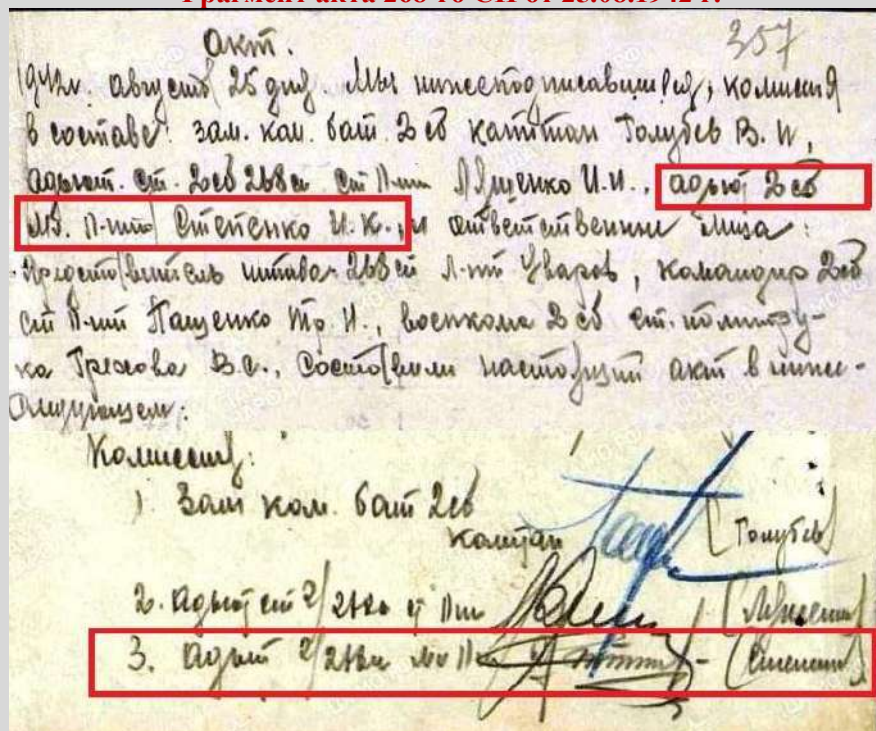 Фрагмент акта 268-го СП от 25.08.1942 г.
Акт.
357
1942г. август 25 дня. Мы нижеподписавшиеся, комиссия
в составе: зам. ком. бат. 2 сб капитан Голубев В. И,
адъют. ст. 2сб 268сп ст л-нт И.И., адъют 2сб
Мл. л-нт Степенко И. К., и ответственные лица:
Представитель штаба 268сп л-нт Уваров, командир 2сб
ст л-нт Пащенко Тр. И., военкома 2 сб ст. политру-
ка Грехова В.С., Составили настоящий акт в ниже-
следующем:
Комиссия:
1. Зам ком. бат 2сб
капитан (Голубев)
2. Адъют ст 2/268сп ст лнт
3. Адъют 2/268сп мл л (Степенко)